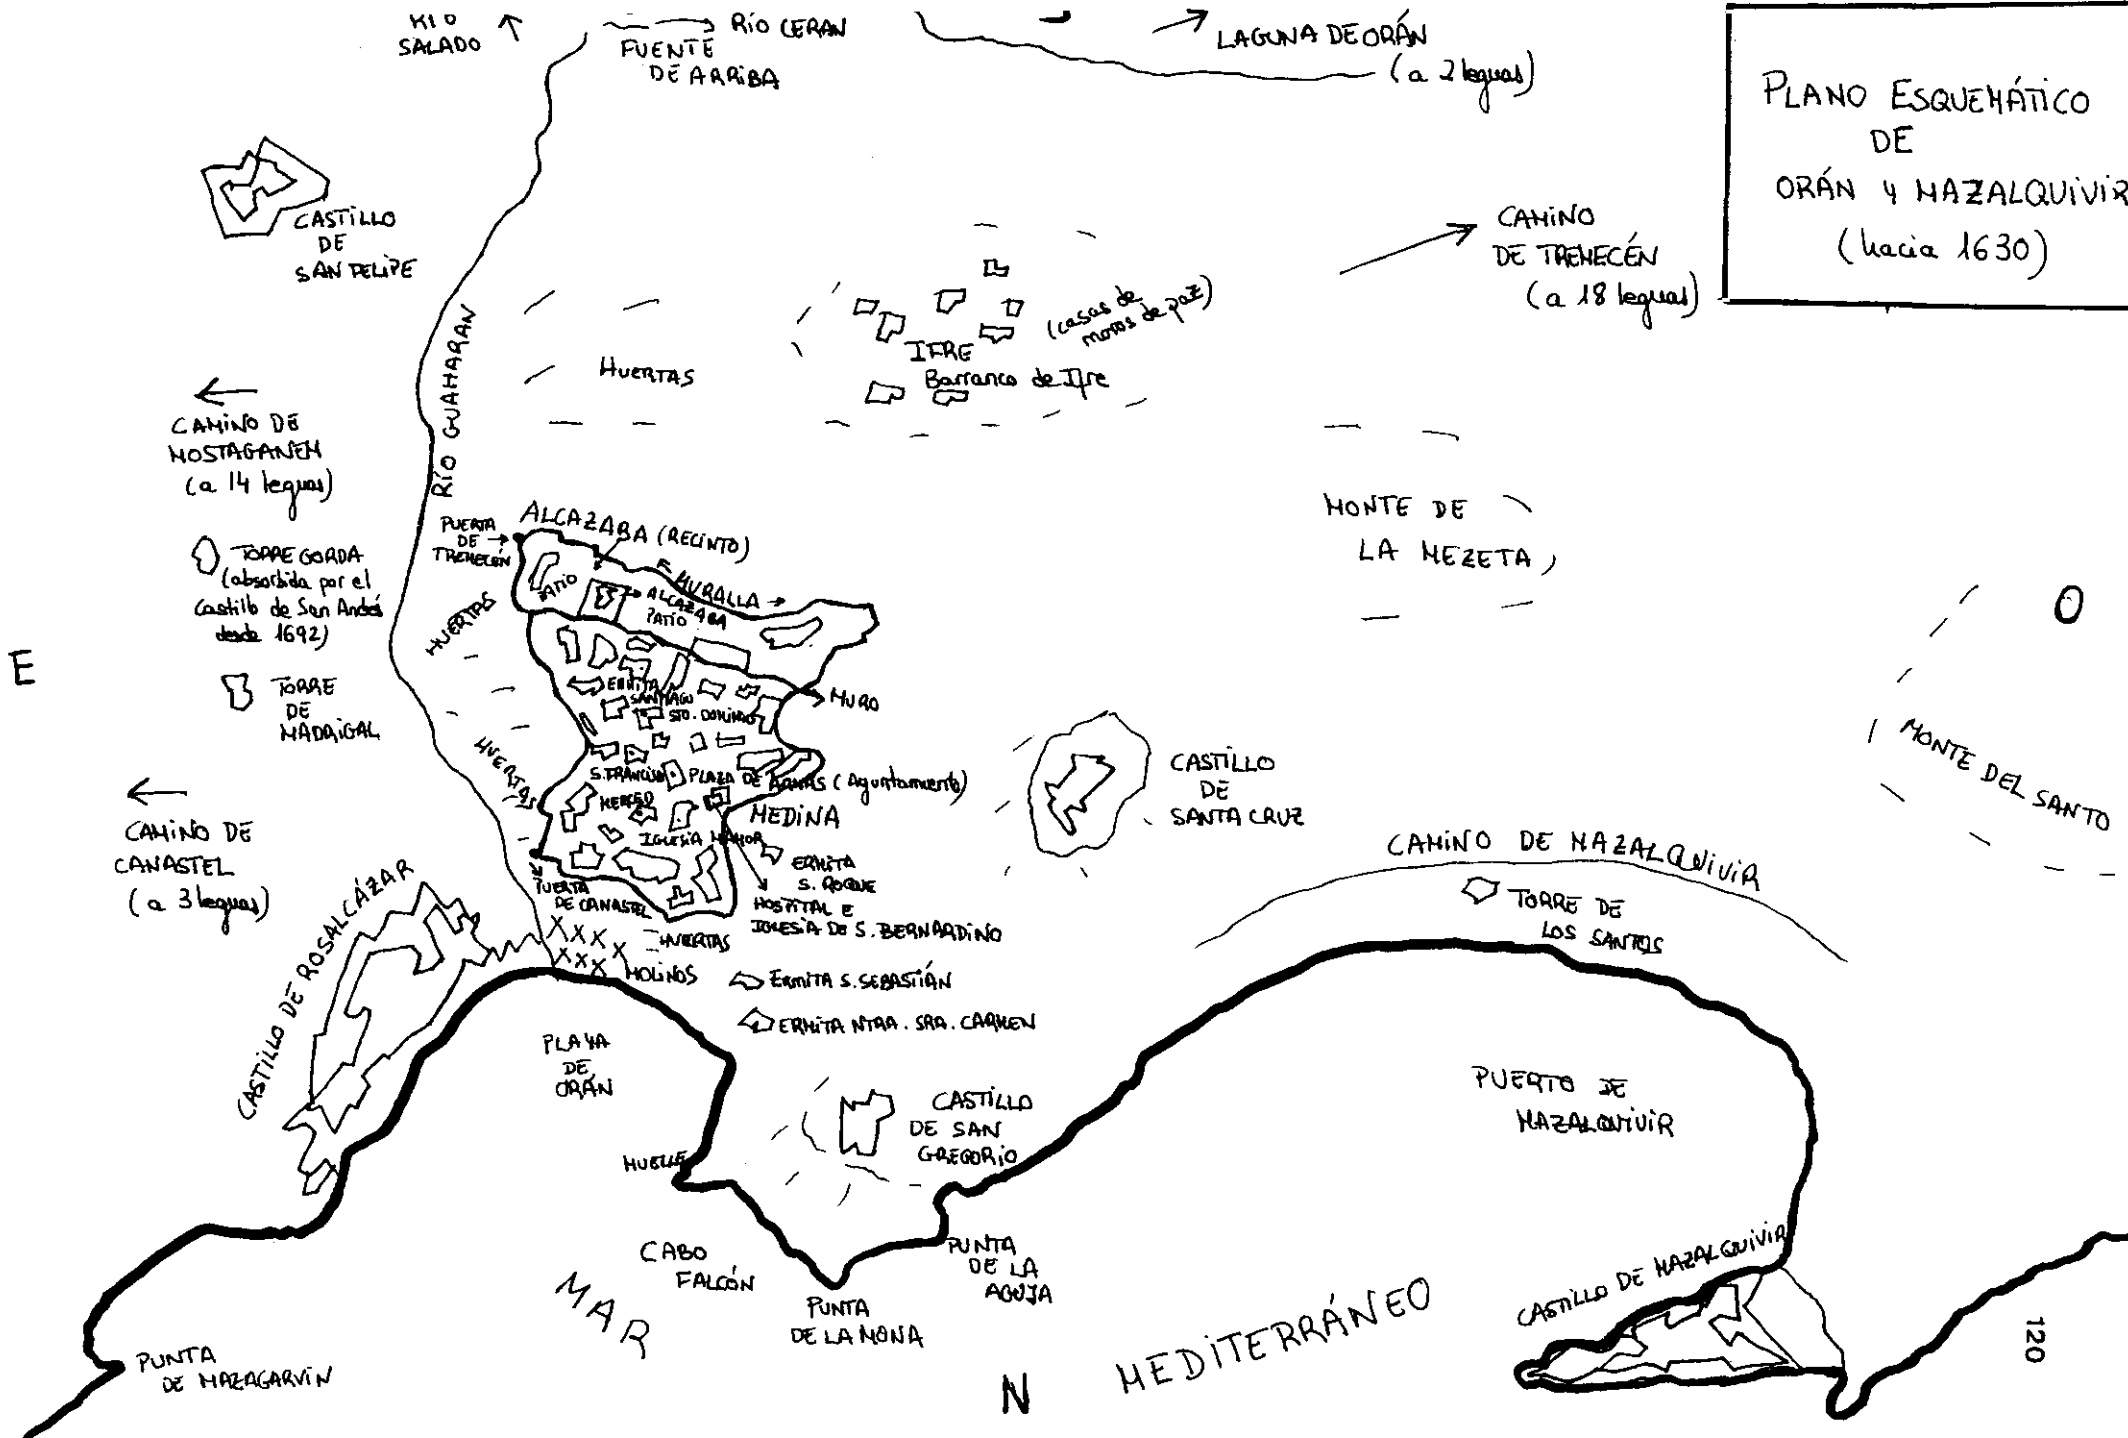 RÍO
SALADO
RÍO CERAN
FUENTE
DE ARRIBA
LAGUNA DE ORÁN
(a 2 leguas)
PLANO ESQUEMÁTICO
DE
ORÁN Y MAZALQUIVIR
(hacia 1630)
CASTILLO
DE
SAN FELIPE
CAMINO
DE TREMECÉN
(a 18 leguas)
(casas de
moros de paz)
IFRE
Barranco de Ifre
HUERTAS
RÍO GUAHARAN
CAMINO DE
MOSTAGANEM
(a 14 leguas)
MONTE DE
LA MEZETA
PUERTA
DE
TREMECÉN
ALCAZABA (RECINTO)
MURALLA
PATIO
ALCAZABA
PATIO
TORRE GORDA
(absorbida por el
Castillo de San Andés
desde 1692)
HUERTAS
E
O
TORRE
DE
MADRIGAL
ERMITA
SANTIAGO
STO. DOMINGO
MURO
HUERTAS
S. FRANCISCO
PLAZA DE ARMAS (Ayuntamiento)
MERCED
MEDINA
IGLESIA MAYOR
CASTILLO
DE
SANTA CRUZ
MONTE DEL SANTO
CAMINO DE
CANASTEL
(a 3 leguas)
ERMITA
S. ROQUE
HOSPITAL E
IGLESIA DE S. BERNARDINO
PUERTA
DE CANASTEL
CAMINO DE MAZALQUIVIR
TORRE DE
LOS SANTOS
CASTILLO DE ROSALCÁZAR
HUERTAS
XXX X
XXX
MOLINOS
ERMITA S. SEBASTIÁN
ERMITA NTRA. SRA. CARMEN
PLAYA
DE
ORÁN
CASTILLO
DE SAN
GREGORIO
PUERTO DE
MAZALQUIVIR
MUELLE
CABO
FALCÓN
PUNTA
DE LA
AGUJA
PUNTA
DE LA MONA
CASTILLO DE MAZALQUIVIR
MAR
MEDITERRÁNEO
N
PUNTA
DE MAZAGARVIN
120